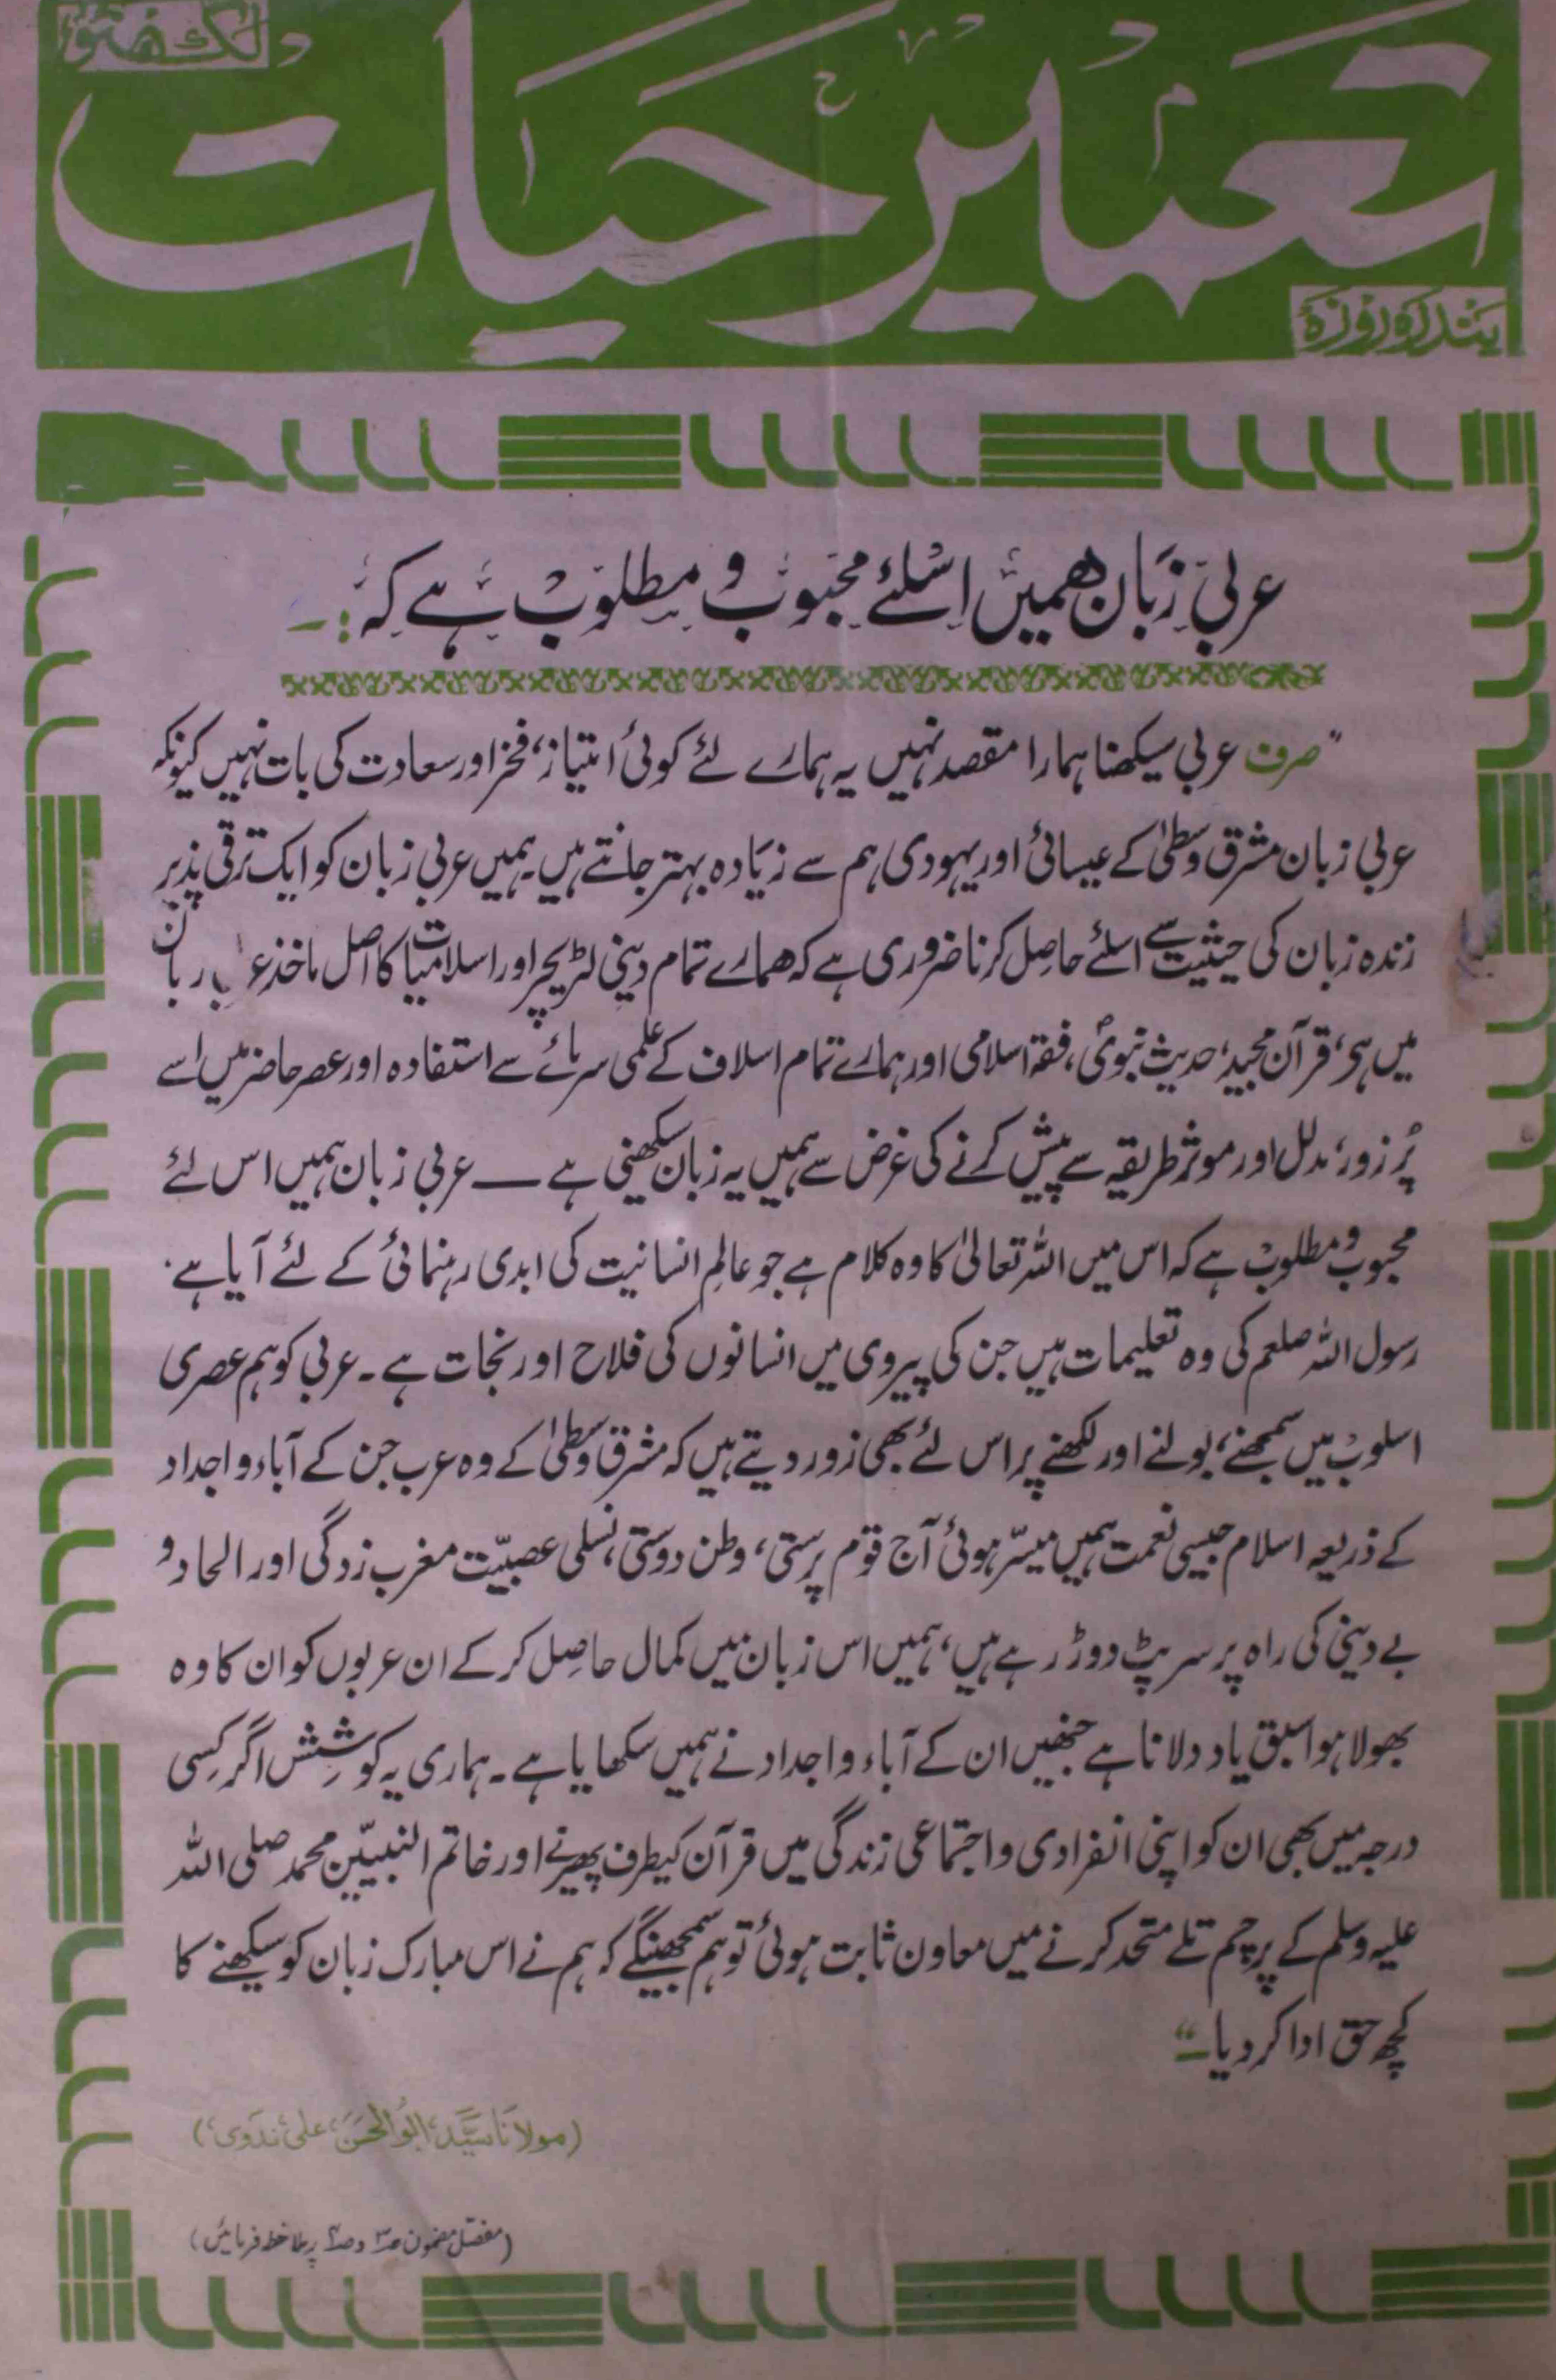 لکھنؤ
تعمیر حیات
پندرہ روزہ
عربی زبان ہمیں اسلئے محبوب و مطلوب ہے کہ :-
"صرف عربی سیکھنا ہمارا مقصد نہیں یہ ہمارے لئے کوئی امتیاز، فخر اور سعادت کی بات نہیں کیونکہ
عربی زبان مشرق وسطیٰ کے عیسائی اور یہودی ہم سے زیادہ بہتر جانتے ہیں۔ ہمیں عربی زبان کو ایک ترقی پذیر
زندہ زبان کی حیثیت سے اسلئے حاصل کرنا ضروری ہے کہ ہمارے تمام دینی لٹریچر اور اسلامیات کا اصل ماخذ عربی زبان
میں ہی، قرآن مجید، حدیث نبویؐ، فقہ اسلامی اور ہمارے تمام اسلاف کے علمی سرمائے سے استفادہ اور عصر حاضر میں اسے
پُر زور، مدلل اور موثر طریقہ سے پیش کرنے کی غرض سے ہمیں یہ زبان سکھینی ہے — عربی زبان ہمیں اس لئے
محبوب و مطلوب ہے کہ اس میں اللہ تعالیٰ کا وہ کلام ہے جو عالم انسانیت کی ابدی رہنمائی کے لئے آیا ہے۔
رسول اللہ صلعم کی وہ تعلیمات ہیں جن کی پیروی میں انسانوں کی فلاح اور نجات ہے۔ عربی کو ہم عصری
اسلوب میں سمجھنے، بولنے اور لکھنے پر اس لئے بھی زور دیتے ہیں کہ مشرق وسطیٰ کے وہ عرب جن کے آباء و اجداد
کے ذریعہ اسلام جیسی نعمت ہمیں میسّر ہوئی آج قوم پرستی، وطن دوستی، نسلی عصبیّت مغرب زدگی اور الحاد و
بے دینی کی راہ پر سرپٹ دوڑ رہے ہیں، ہمیں اس زبان میں کمال حاصل کر کے ان عربوں کو ان کا وہ
بھولا ہوا سبق یاد دلانا ہے جنھیں ان کے آباء و اجداد نے ہمیں سکھایا ہے۔ ہماری یہ کوشش اگر کسی
درجہ میں بھی ان کو اپنی انفرادی و اجتماعی زندگی میں قرآن کیطرف پھیرنے اور خاتم النبیّین محمد صلی اللہ
علیہ وسلم کے پرچم تلے متحد کرنے میں معاون ثابت ہوئی تو ہم سمجھینگے کہ ہم نے اس مبارک زبان کو سیکھنے کا
کچھ حق ادا کر دیا۔"
(مولانا سیّد ابوالحسن علی ندوی)
(مفصّل مضمون پر ملاحظہ فرمائیں)